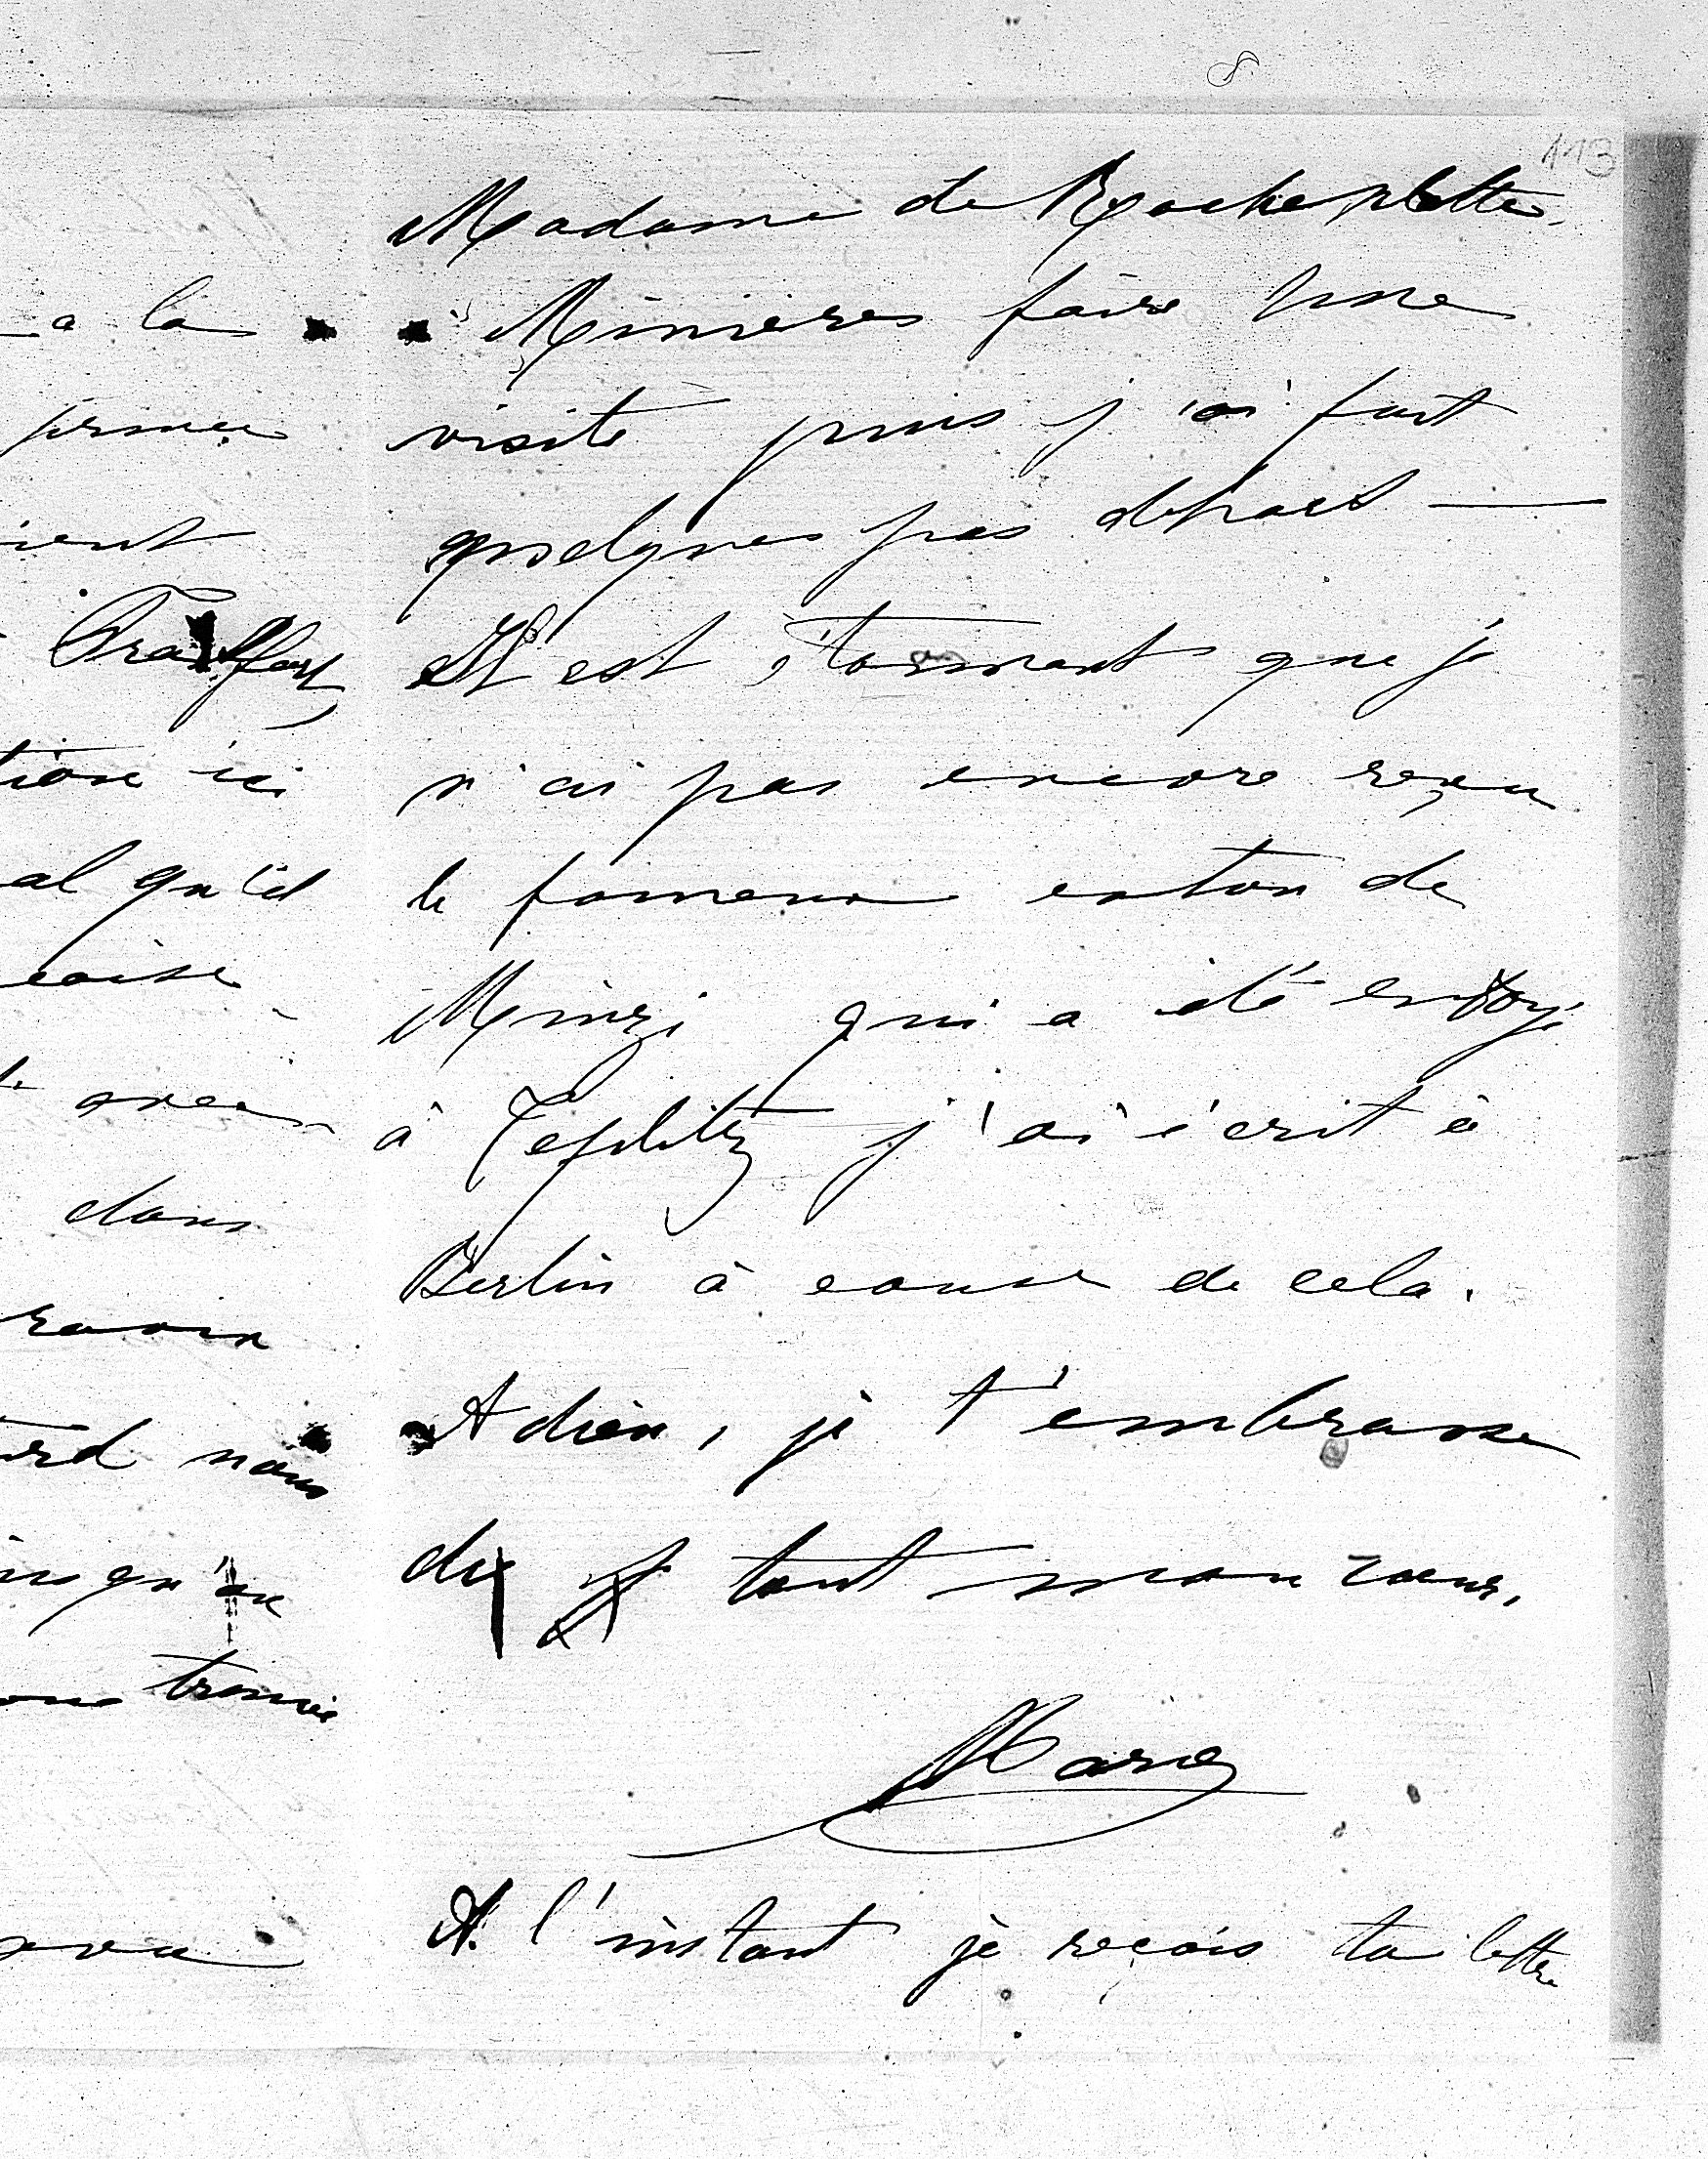 8
113
Madame de Rocheplatte
Minieres faire une
visite puis j'ai fait
quelques pas dehors —
Il est étonnant que je
n'ai pas encore reçu
le fameux carton de
qui a été envoyé
à Teplitz j'ai écrit à
Berlin à cause de cela.
Adieu, je t'embrasse
de tout mon coeur.
Marie
A l'instant je reçois ta lettre
a la
ient
tion ici
al qu'il
avec
dans
ravin
ard nous
usqu'au
ous